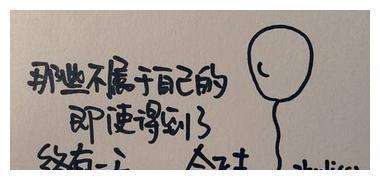 那些不属于自己的
即使得到了
终有一